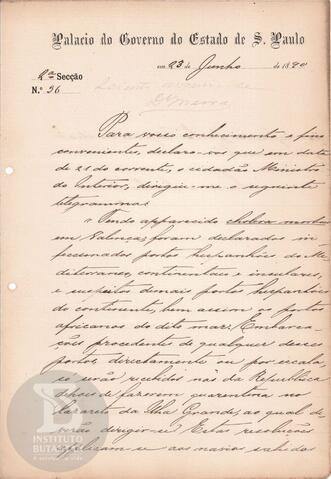 Palacio do Governo do Estado de S. Paulo
em 23 de Junho de 1890
2ª Secção
N.º 36
Para vosso conhecimento e fins
convenientes, declaro-vos que em data
de 21 do corrente, o cidadão Ministro
do Interior, dirigiu-me o seguinte
telegramma:
"Tendo apparecido cholera morbus
em Valença, foram declarados in-
feccionados portos hespanhóes do Me-
diterraneo, continentaes e insulares,
e suspeitos demais portos hespanhóes
do continente, bem assim os portos
africanos do dito mar. Embarca-
ções procedentes de qualquer desses
portos, directamente ou por escala,
só serão recebidos nos da Republica
depois de fazerem quarentena no
lazareto da Ilha Grande, ao qual de-
verão dirigir-se. Estas resoluções
applicam-se aos navios sahidos
INSTITUTO
BUTANTAN
A serviço da vida